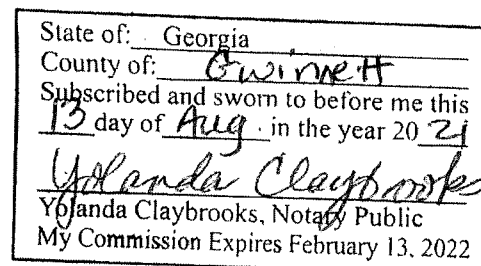 State of: Georgia
County of: Gwinnett
Subscribed and sworn to before me this
13 day of Aug. in the year 20 21
Yolanda Claybrooks
Yolanda Claybrooks, Notary Public
My Commission Expires February 13, 2022